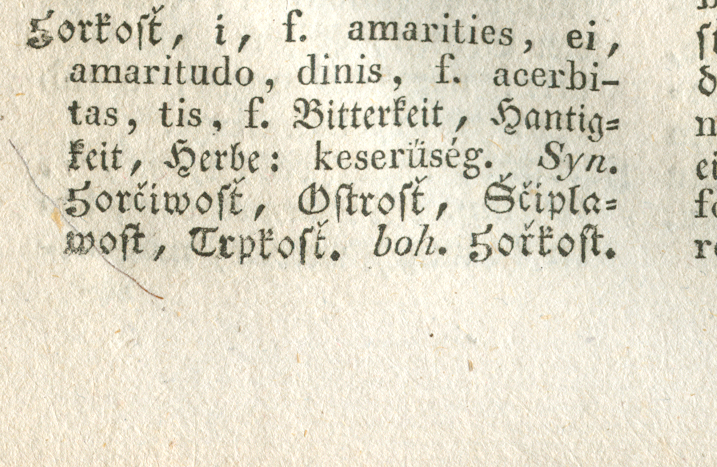 Horkosť, i, f. amarities, ei,
amaritudo, dinis, f. acerbi-
tas, tis, f. Bitterkeit, Hantig=
keit, Herbe: keserüség. Syn.
Horčiwosť, Ostrosť, Ščipla=
wosť, Trpkosť. boh. Hořkost.